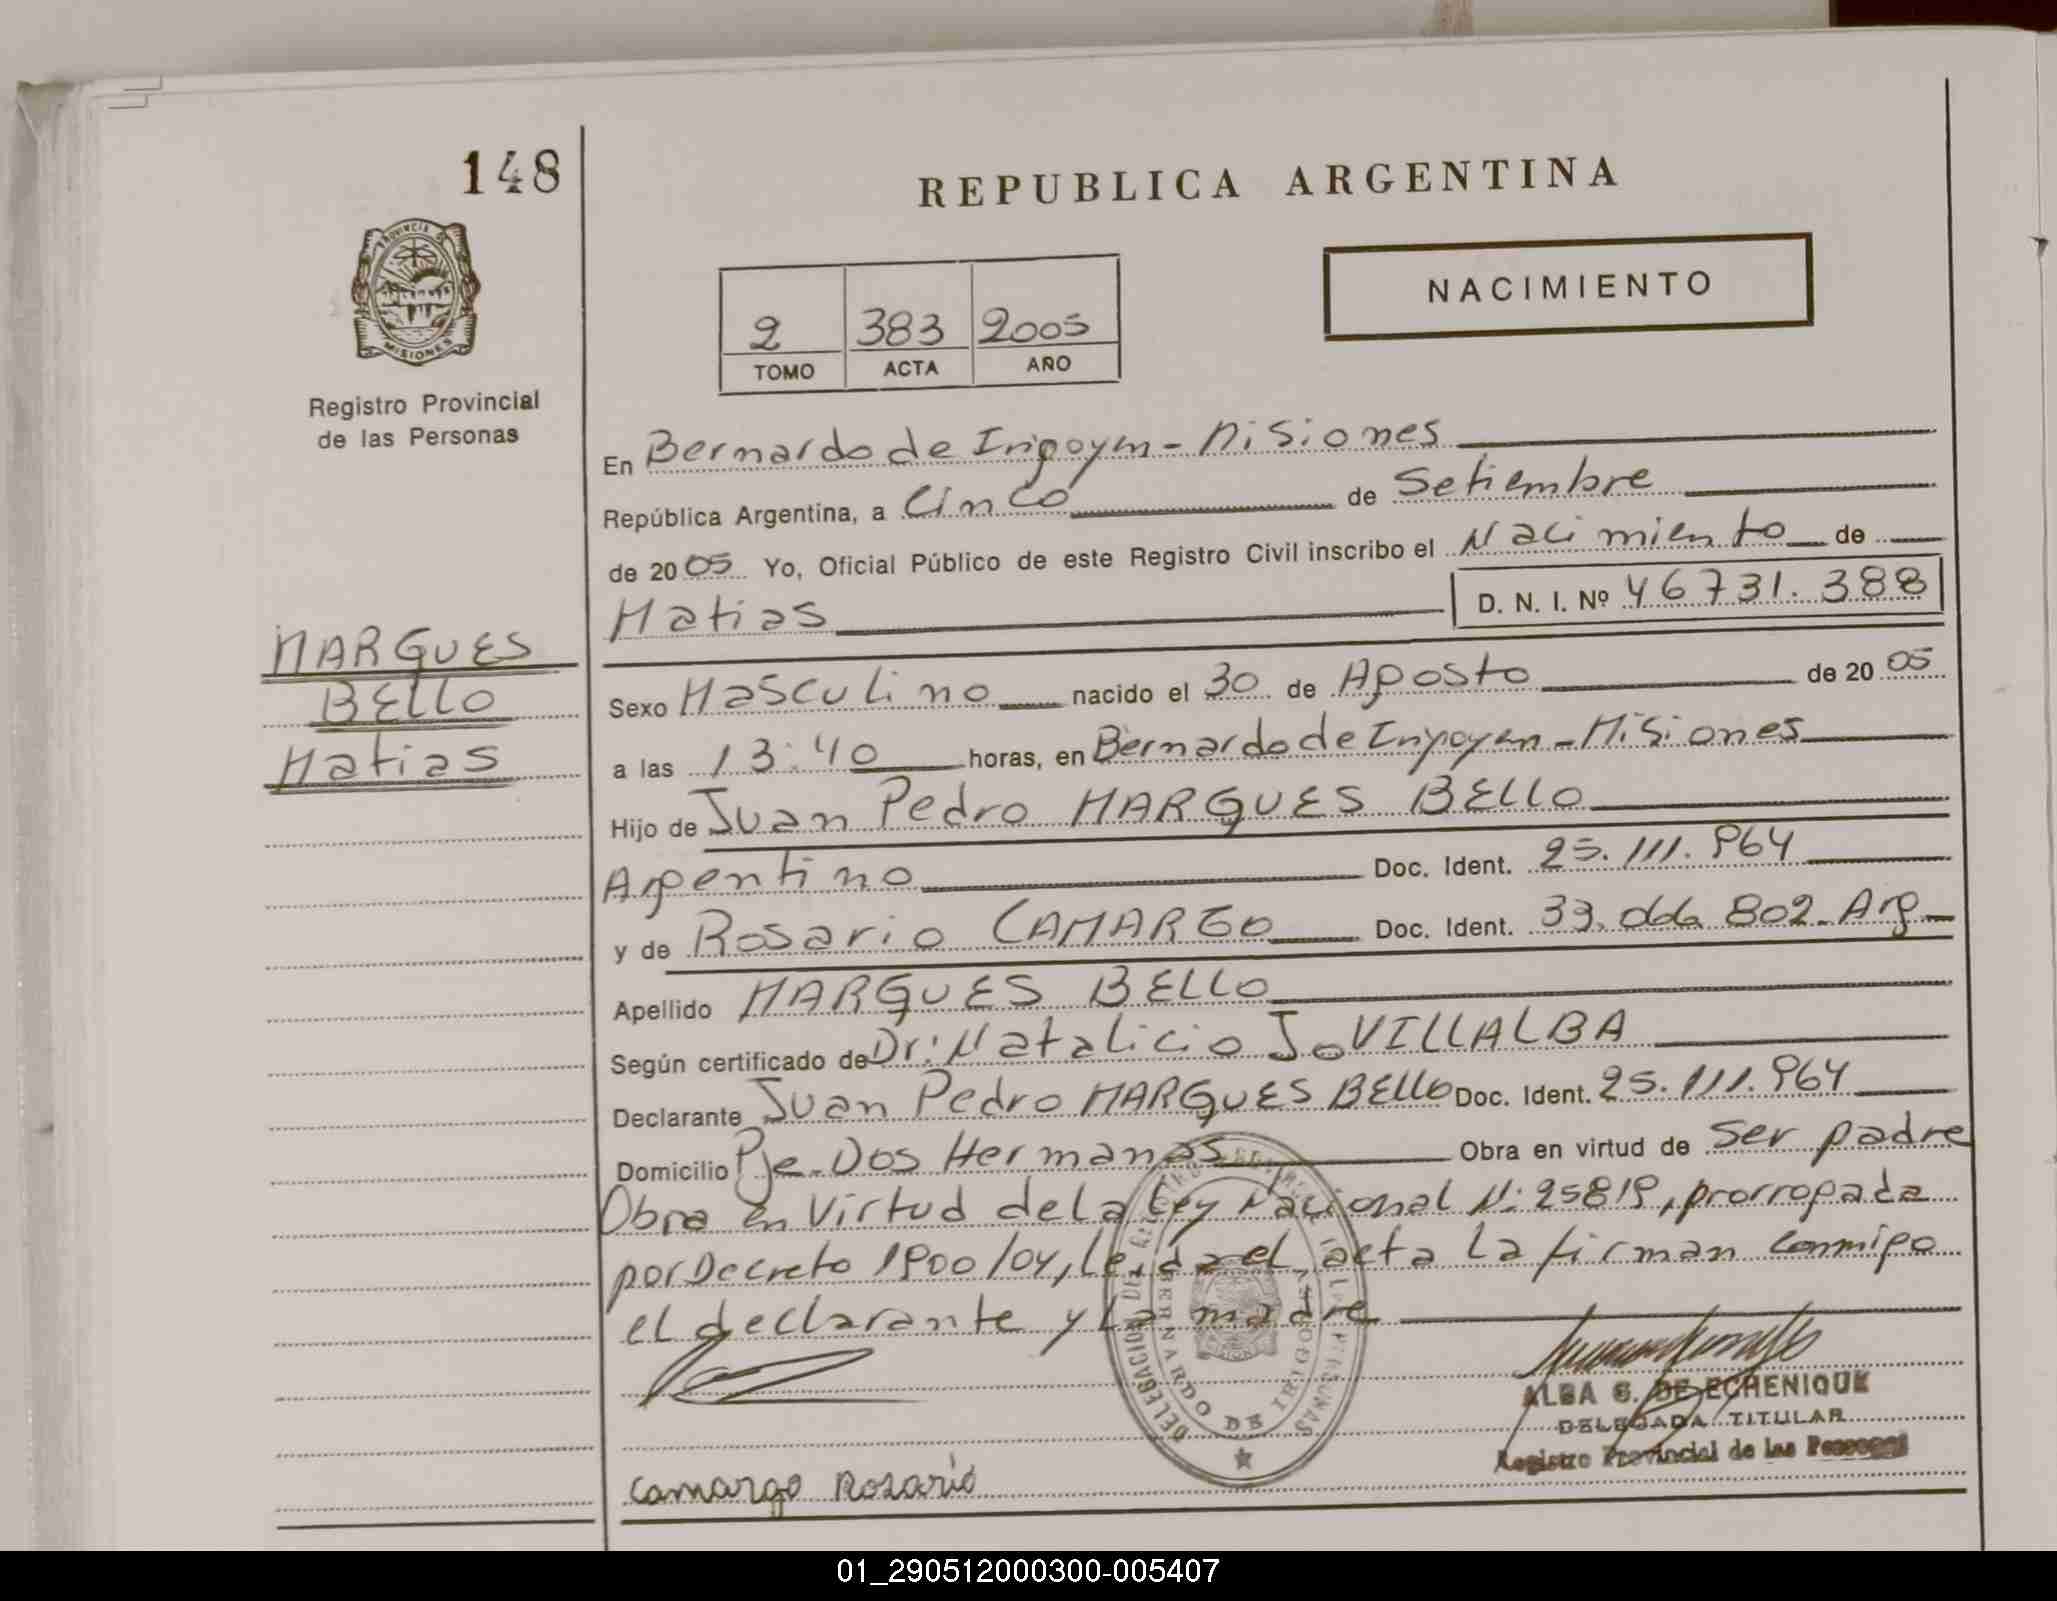 148
REPUBLICA ARGENTINA
PROVINCIA DE
MISIONES
NACIMIENTO
2 383 2005
TOMO ACTA AÑO
Registro Provincial
de las Personas
En Bernardo de Irigoyen - Misiones
República Argentina, a Cinco de Setiembre
de 2005 Yo, Oficial Público de este Registro Civil inscribo el Nacimiento de
Matias D. N. I. Nº 46731.388
MARQUES
BELLO
Matias
Sexo Masculino nacido el 30 de Agosto de 2005
a las 13:40 horas, en Bernardo de Irigoyen - Misiones
Hijo de Juan Pedro MARQUES BELLO
Argentino Doc. Ident. 25.111.964
y de Rosario CAMARGO Doc. Ident. 33.066.802-Arg
Apellido MARQUES BELLO
Según certificado de Dr: Natalicio J. VILLALBA
Declarante Juan Pedro MARQUES BELLO Doc. Ident. 25.111.964
Domicilio Pje. Dos Hermanas Obra en virtud de ser padre
Obra en Virtud de la Ley Nacional N: 25819, prorrogada
por Decreto 1900/04, leida el acta la firman conmigo
el declarante y la madre
DELEGACION DEL REGISTRO PROVINCIAL DE LAS PERSONAS
BERNARDO DE IRIGOYEN
MISIONES
ALBA G. DE ECHENIQUE
DELEGADA TITULAR
Registro Provincial de las Personas
Camargo Rosario
01_290512000300-005407